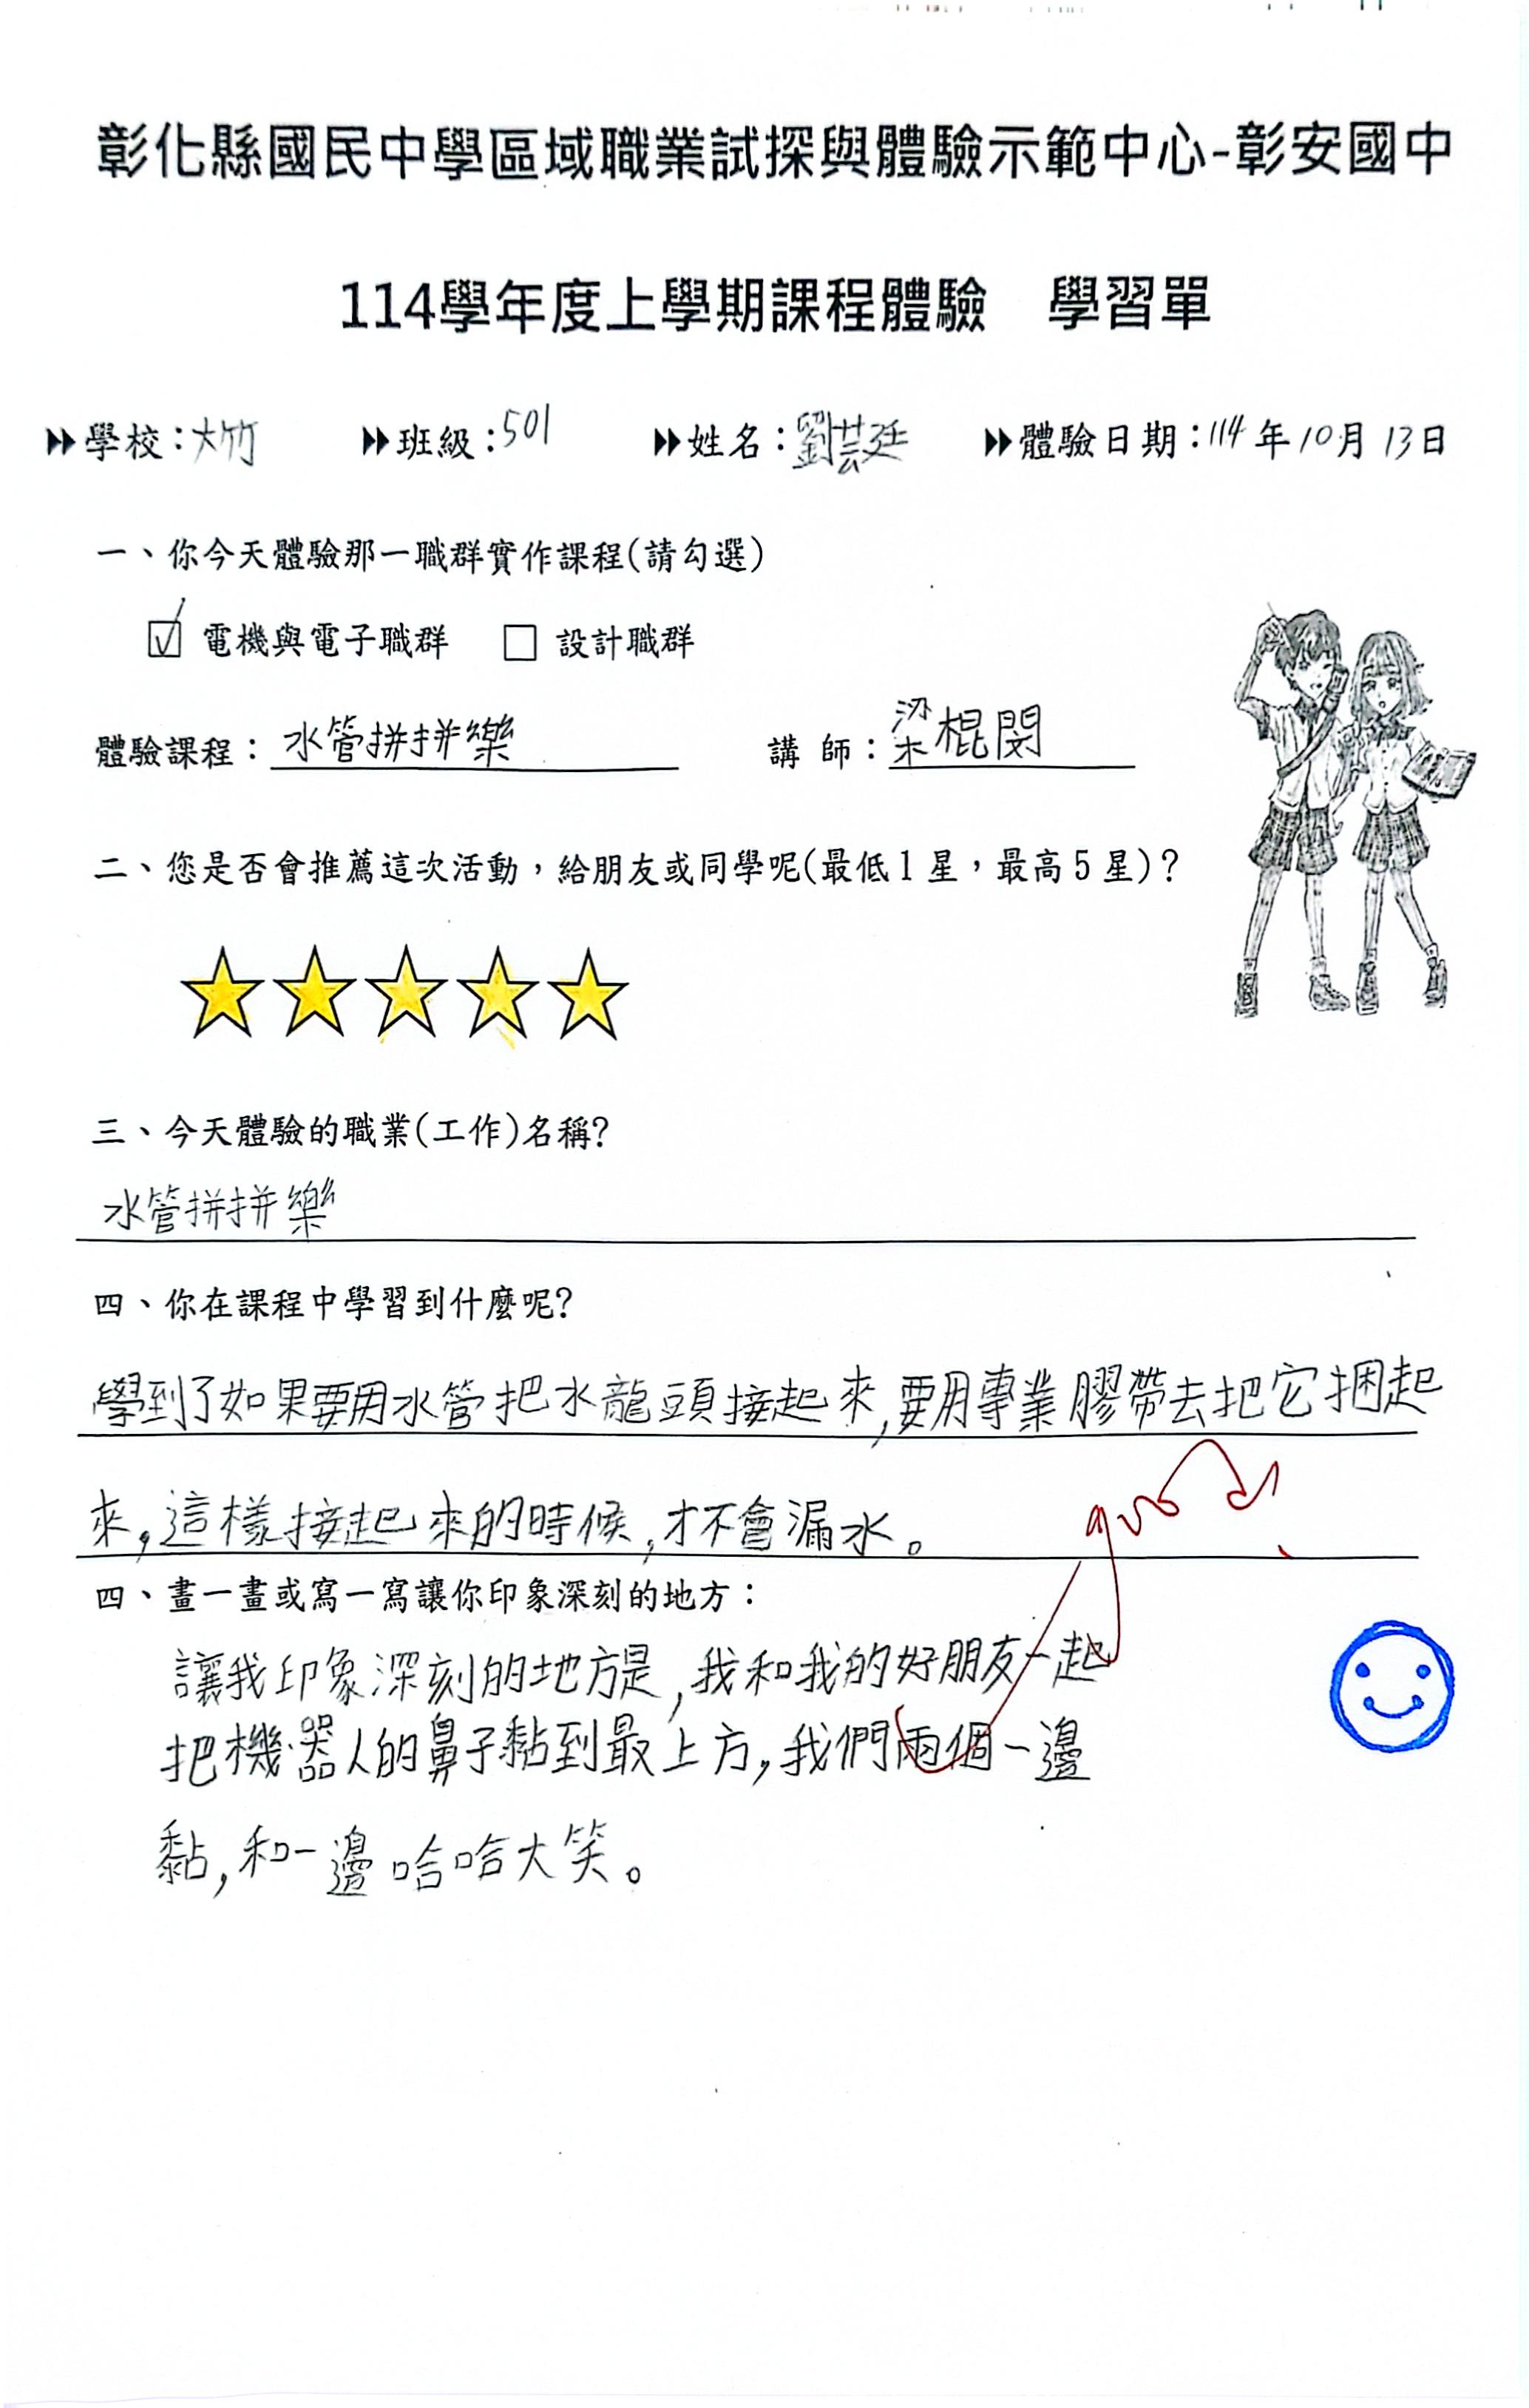 彰化縣國民中學區域職業試探與體驗示範中心-彰安國中
114學年度上學期課程體驗 學習單
學校：大竹 班級：501 姓名：劉芸廷 體驗日期：114年10月13日
一、你今天體驗那一職群實作課程(請勾選)
☑ 電機與電子職群 □ 設計職群
體驗課程：水管拼拼樂 講 師：梁棍閔
二、您是否會推薦這次活動，給朋友或同學呢(最低1星，最高5星)？
三、今天體驗的職業(工作)名稱?
水管拼拼樂
四、你在課程中學習到什麼呢?
學到了如果要用水管把水龍頭接起來,要用專業膠帶去把它捆起
來,這樣接起來的時候,才不會漏水。
good!
四、畫一畫或寫一寫讓你印象深刻的地方：
讓我印象深刻的地方是,我和我的好朋友一起
把機器人的鼻子黏到最上方,我們兩個一邊
黏,和一邊哈哈大笑。